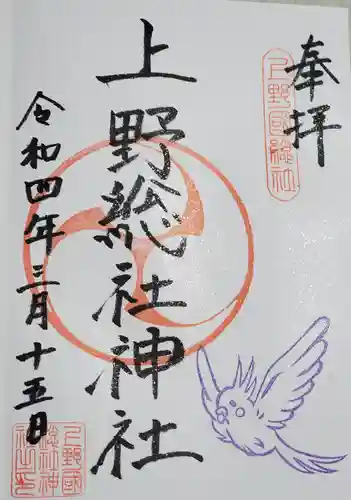 奉拝
上野國総社
上野総社神社
令和四年三月十五日
上野國
総社神
社之印